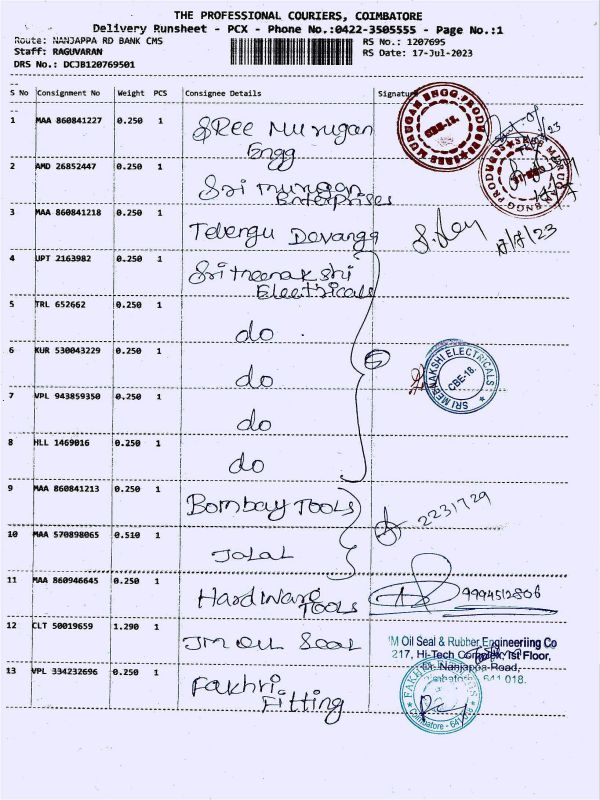 THE PROFESSIONAL COURIERS, COIMBATORE
Delivery Runsheet - PCX - Phone No.:0422-3505555 - Page No.:1
Route: NANJAPPA RD BANK CMS
RS No.: 1207695
Staff: RAGUVARAN
RS Date: 17-Jul-2023
DRS No.: DCJB120769501
S No Consignment No Weight PCS Consignee Details Signature
1 MAA 860841227 0.250 1 SRee Murugan
Engg
2 AMD 26852447 0.250 1 Sri murugan
Enterprises
3 MAA 860841218 0.250 1 Telengu Devanga 17/7/23
4 UPT 2163982 0.250 1 Sri meenakshi
Electricals
5 TRL 652662 0.250 1 do
6 KUR 530043229 0.250 1 do
SRI MEENAKSHI ELECTRICALS
CBE-18.
7 VPL 943859350 0.250 1 do
8 HLL 1469016 0.250 1 do
9 MAA 860841213 0.250 1 Bombay Tools 2231729
10 MAA 570898065 0.510 1 Jalal
11 MAA 860946645 0.250 1 Hardware
Tools 9994512806
12 CLT 50019659 1.290 1 JM Oil Seal
M Oil Seal & Rubber Engineeriing Co
217, Hi-Tech Complex, Ist Floor,
Dr. Nanjappa Road,
641 018.
13 VPL 334232696 0.250 1 Fakhri
Fitting
Coimbatore - 641 018